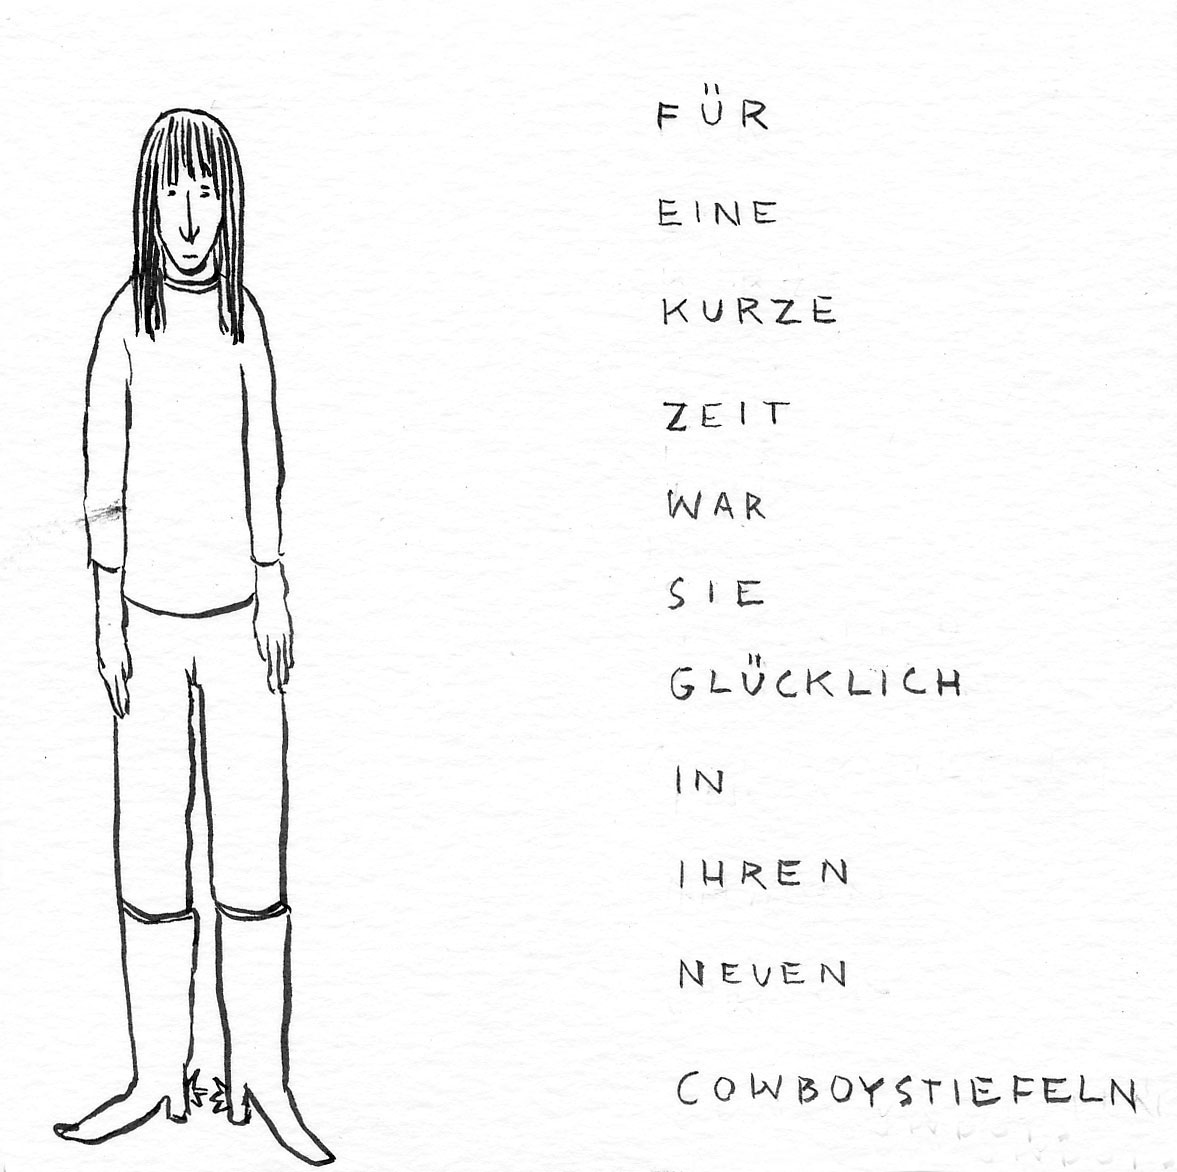 FÜR
EINE
KURZE
ZEIT
WAR
SIE
GLÜCKLICH
IN
IHREN
NEUEN
COWBOYSTIEFELN